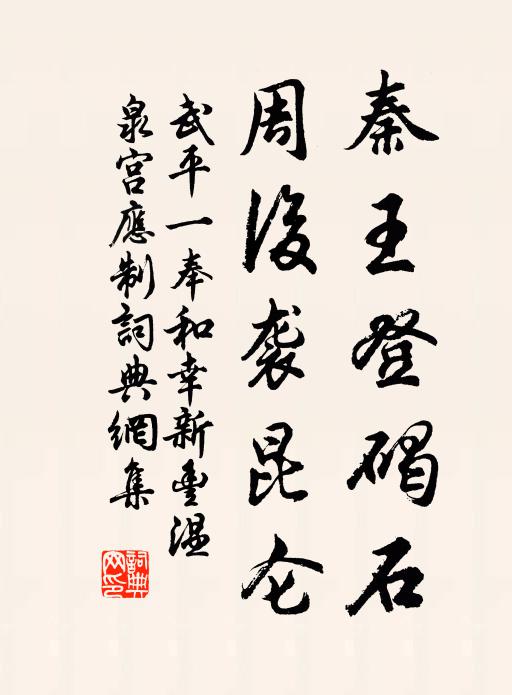 秦王登碣石
周後袭昆仑
武平一奉和幸新豊温
泉宫應制詞典網集
詞典
网印